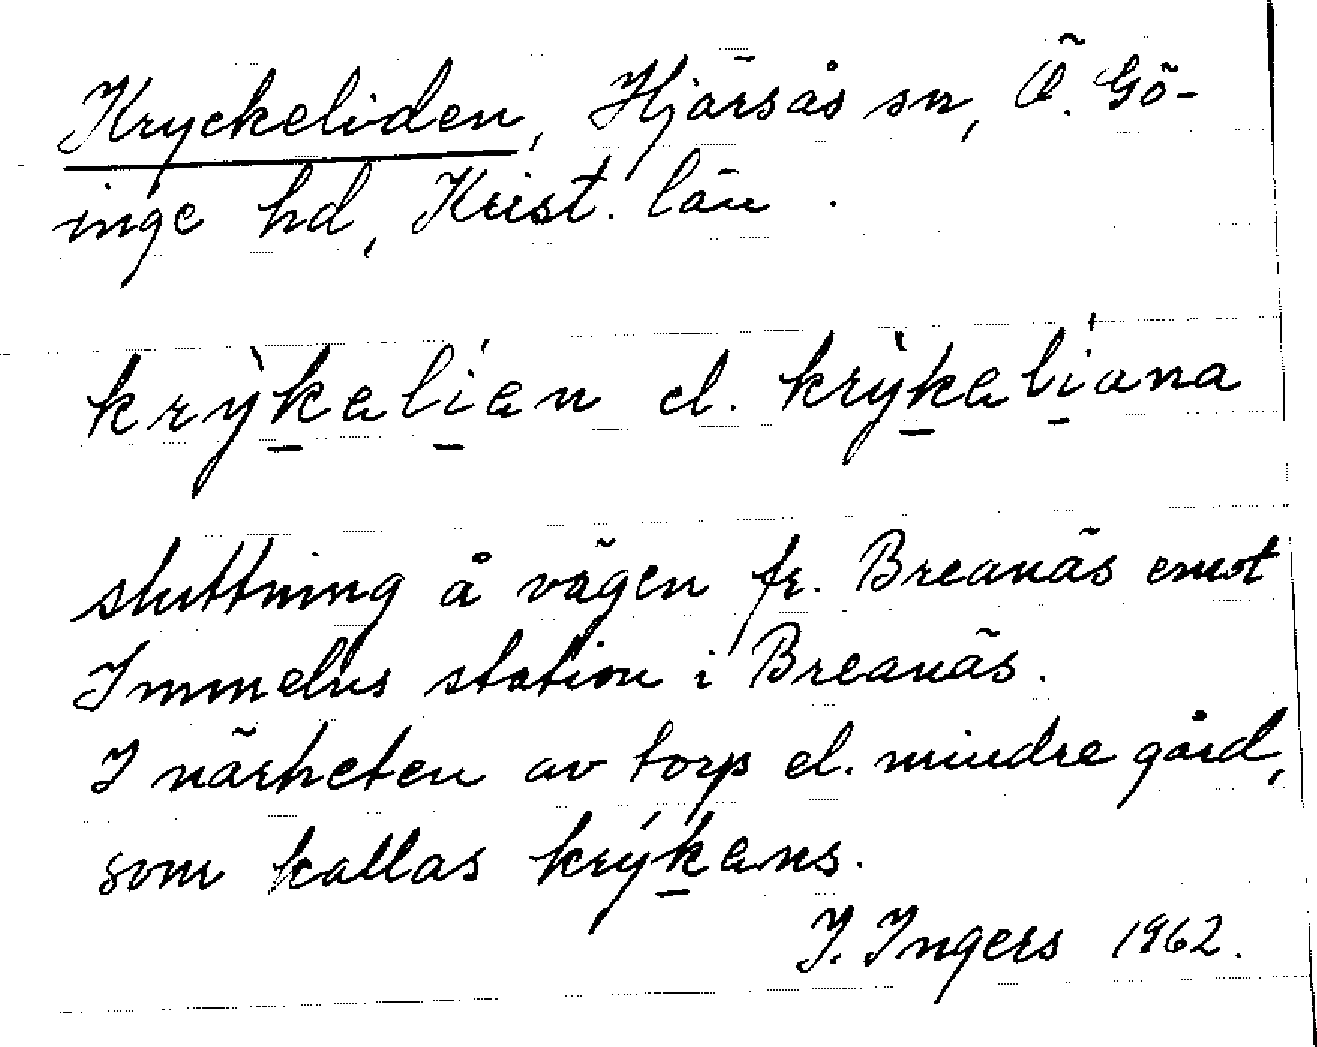 Kryckeliden, Hjärsås sn, Ö. Gö-
inge hd, Krist. län.
krỳk̲əlí̲ən el. krỳk̲əlí̲ana
sluttning å vägen fr. Breanäs emot
Immelns station i Breanäs.
I närheten av torp el. mindre gård,
som kallas krýk̲əns.
I. Ingers 1962.